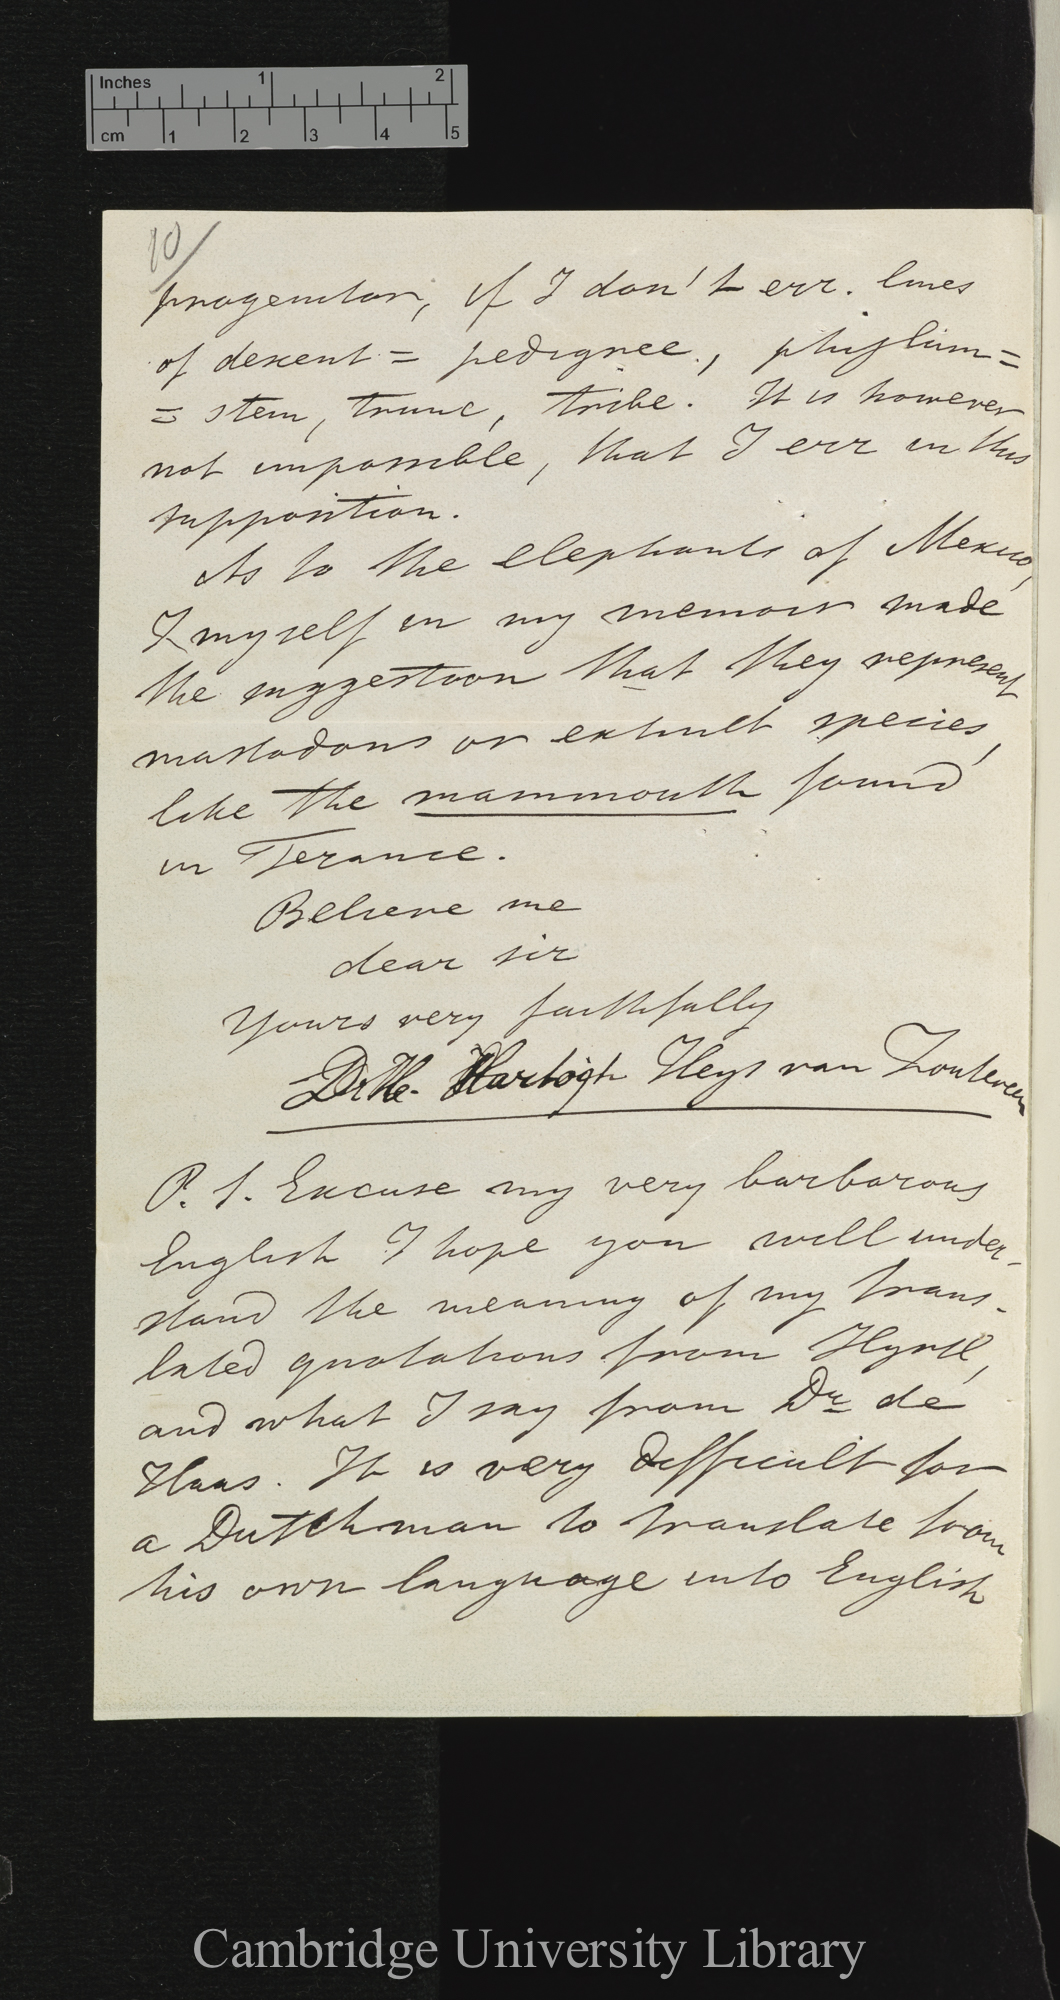 Inches 1 2
cm 1 2 3 4 5
10/
progenitor, if I don't err. lines
of descent = pedigree., phylum=
= stem, trunc, tribe. It is however
not impossible, that I err in this
supposition.
As to the elephants of Mexico,
I myself in my memoir made
the suggestoon that they represent
mastodons or extinct species,
like the mammouth found
in France.
Believe me
dear sir
Yours very faithfully
Dr. Hartogh Heys van Zouteveen
P. S. Excuse my very barbarous
English I hope you will under-
stand the meaning of my trans-
lated quotations from Hyrtl,
and what I say from Dr de
Haas. It is very difficult for
a Dutchman to translate from
his own language into English
Cambridge University Library